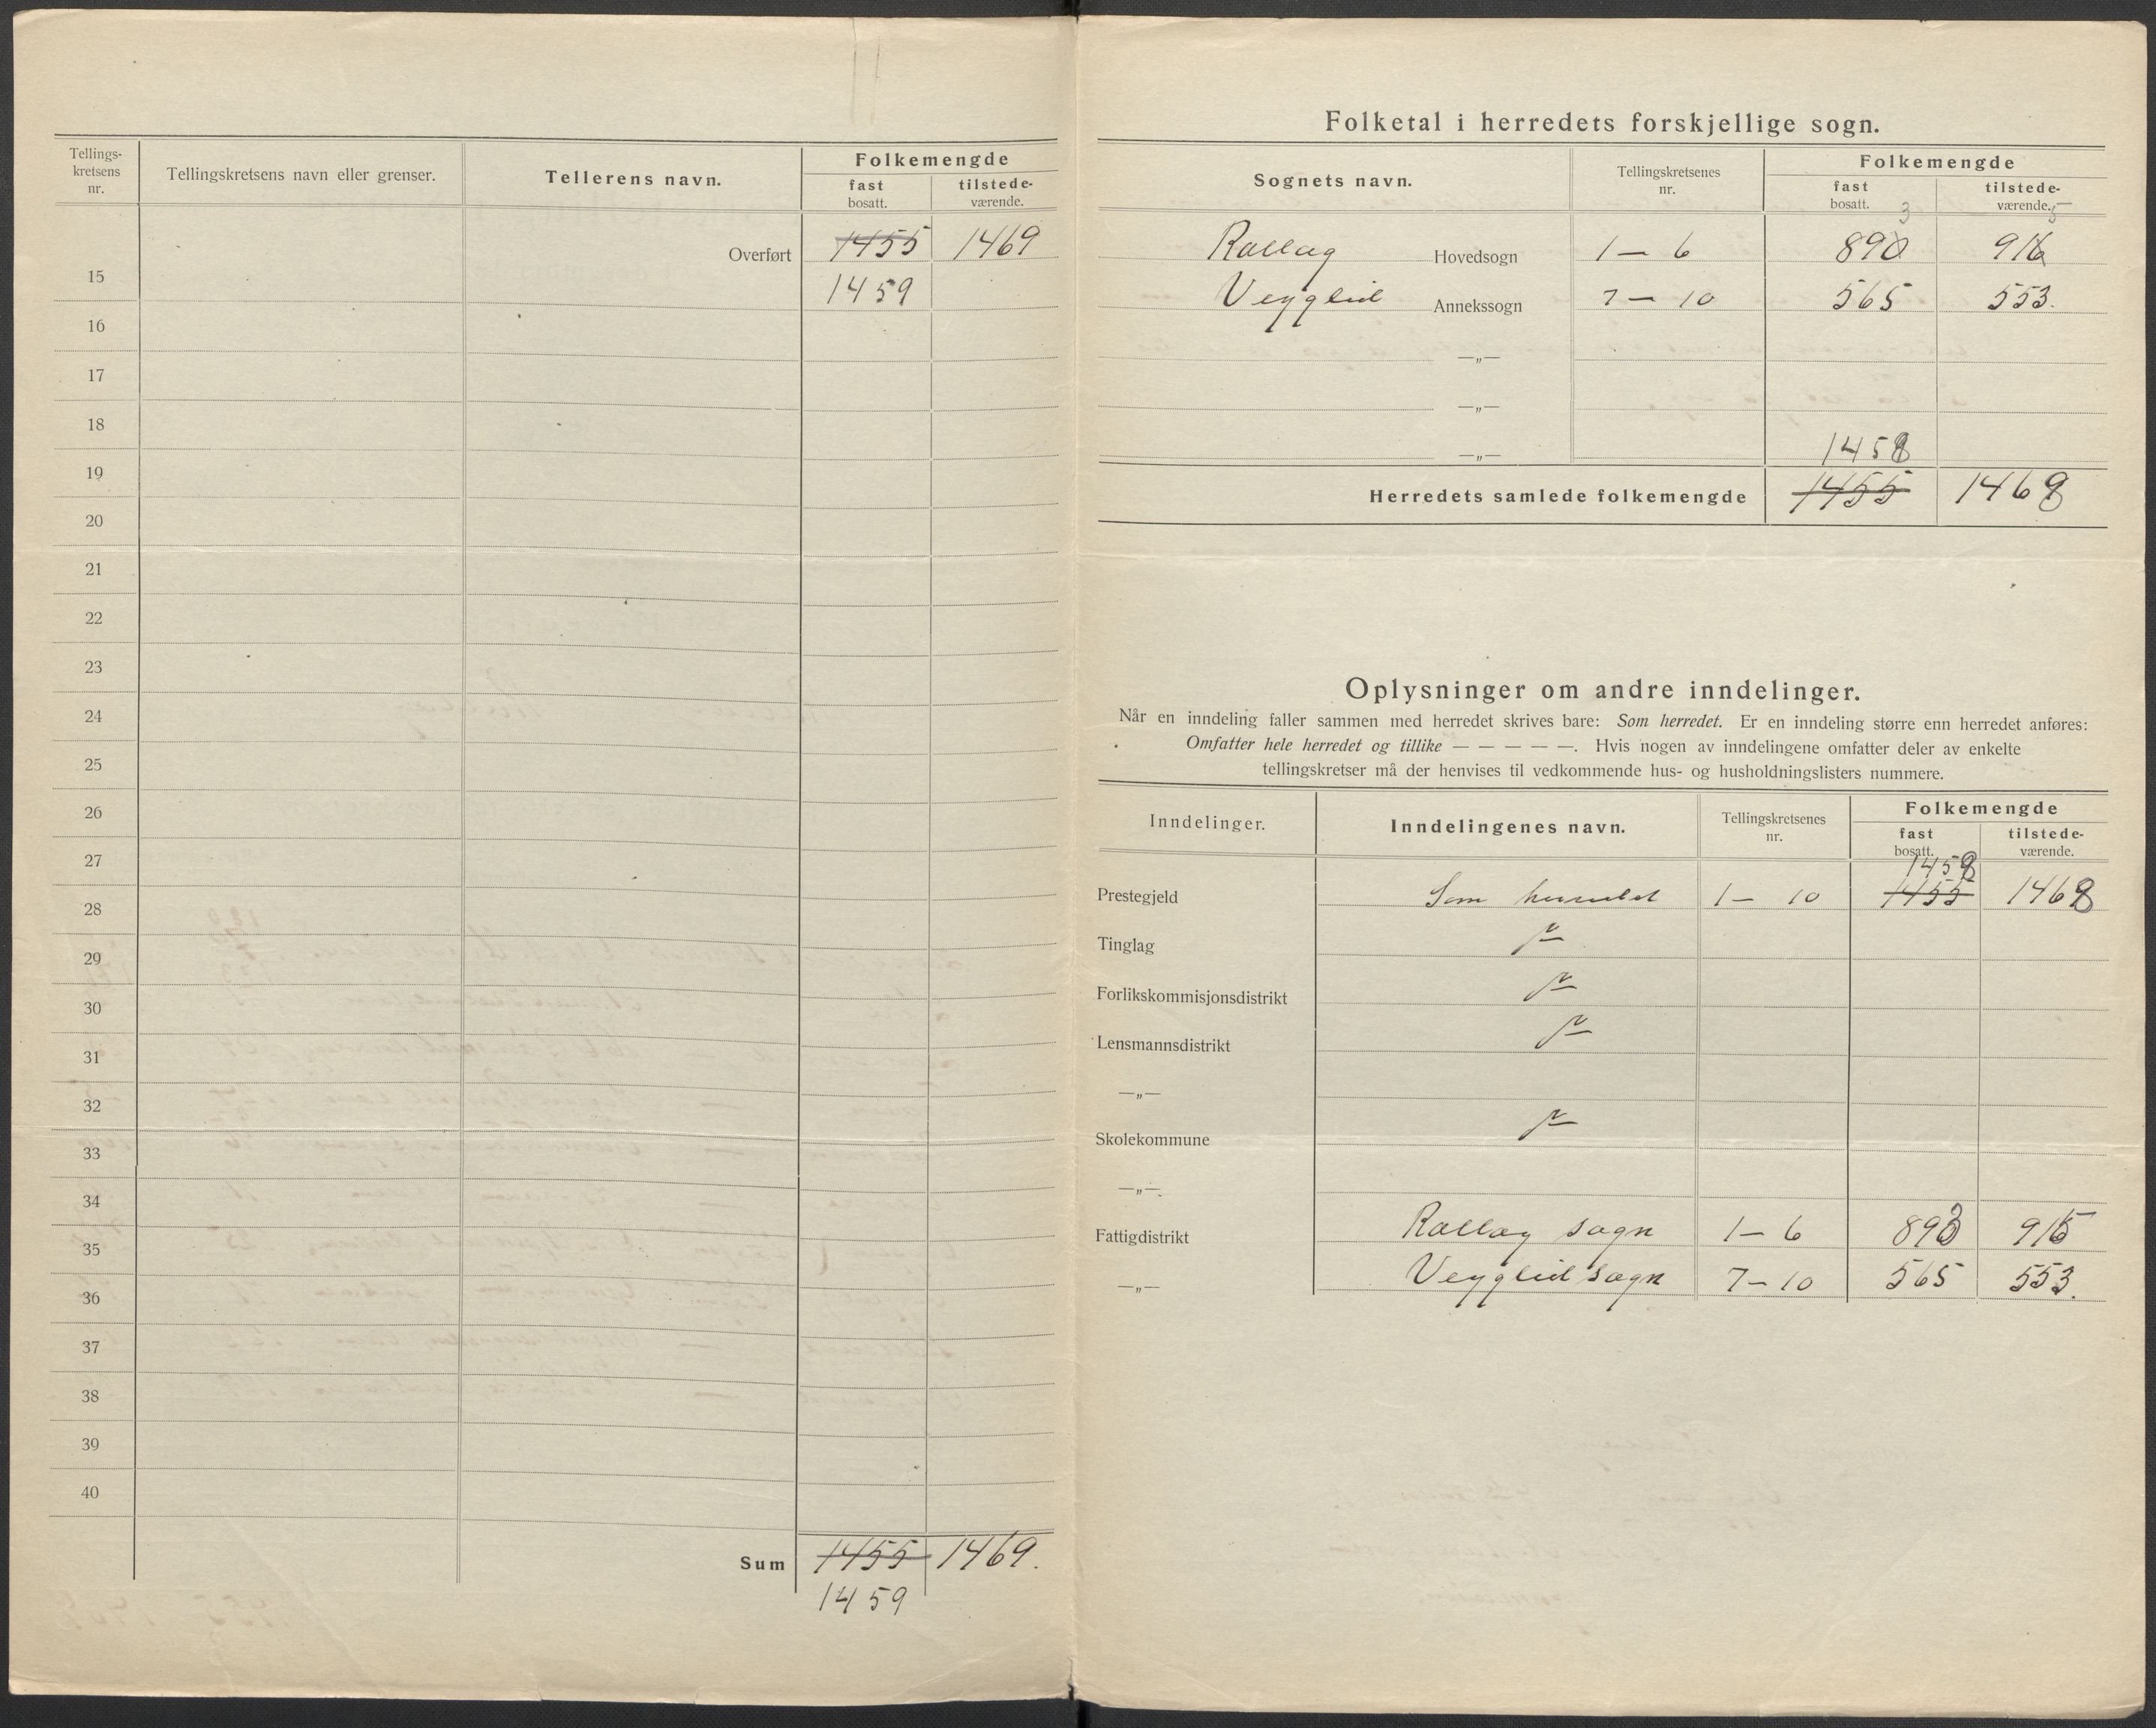 Tellings-
kretsens
nr.
Tellingskretsens navn eller grenser.
Tellerens navn.
Folkemengde
fast
bosatt.
tilstede-
værende.
Overført 1455 1469
15 1459
16
17
18
19
20
21
22
23
24
25
26
27
28
29
30
31
32
33
34
35
36
37
38
39
40
Sum 1455 1469.
1459
Folketal i herredets forskjellige sogn.
Sognets navn.
Tellingskretsenes
nr.
Folkemengde
fast
bosatt.
tilstede-
værende.
3 5
Rollag Hovedsogn 1 — 6 890 916
Veggliid Annekssogn 7 — 10 565 553.
—„—
—„—
1458
—„—
Herredets samlede folkemengde 1455 1468
Oplysninger om andre inndelinger.
Når en inndeling faller sammen med herredet skrives bare: Som herredet. Er en inndeling større enn herredet anføres:
Omfatter hele herredet og tillike — — — — —. Hvis nogen av inndelingene omfatter deler av enkelte
tellingskretser må der henvises til vedkommende hus- og husholdningslisters nummere.
Inndelinger.
Inndelingenes navn.
Tellingskretsenes
nr.
Folkemengde
fast
bosatt.
tilstede-
værende.
1458
Prestegjeld Som herredet 1 — 10 1455 1468
Tinglag
Forlikskommisjonsdistrikt
Lensmannsdistrikt
—„—
Skolekommune
—„—
Fattigdistrikt Rollag sogn 1 — 6 893 915
—„— Veggliid sogn 7 — 10 565 553.